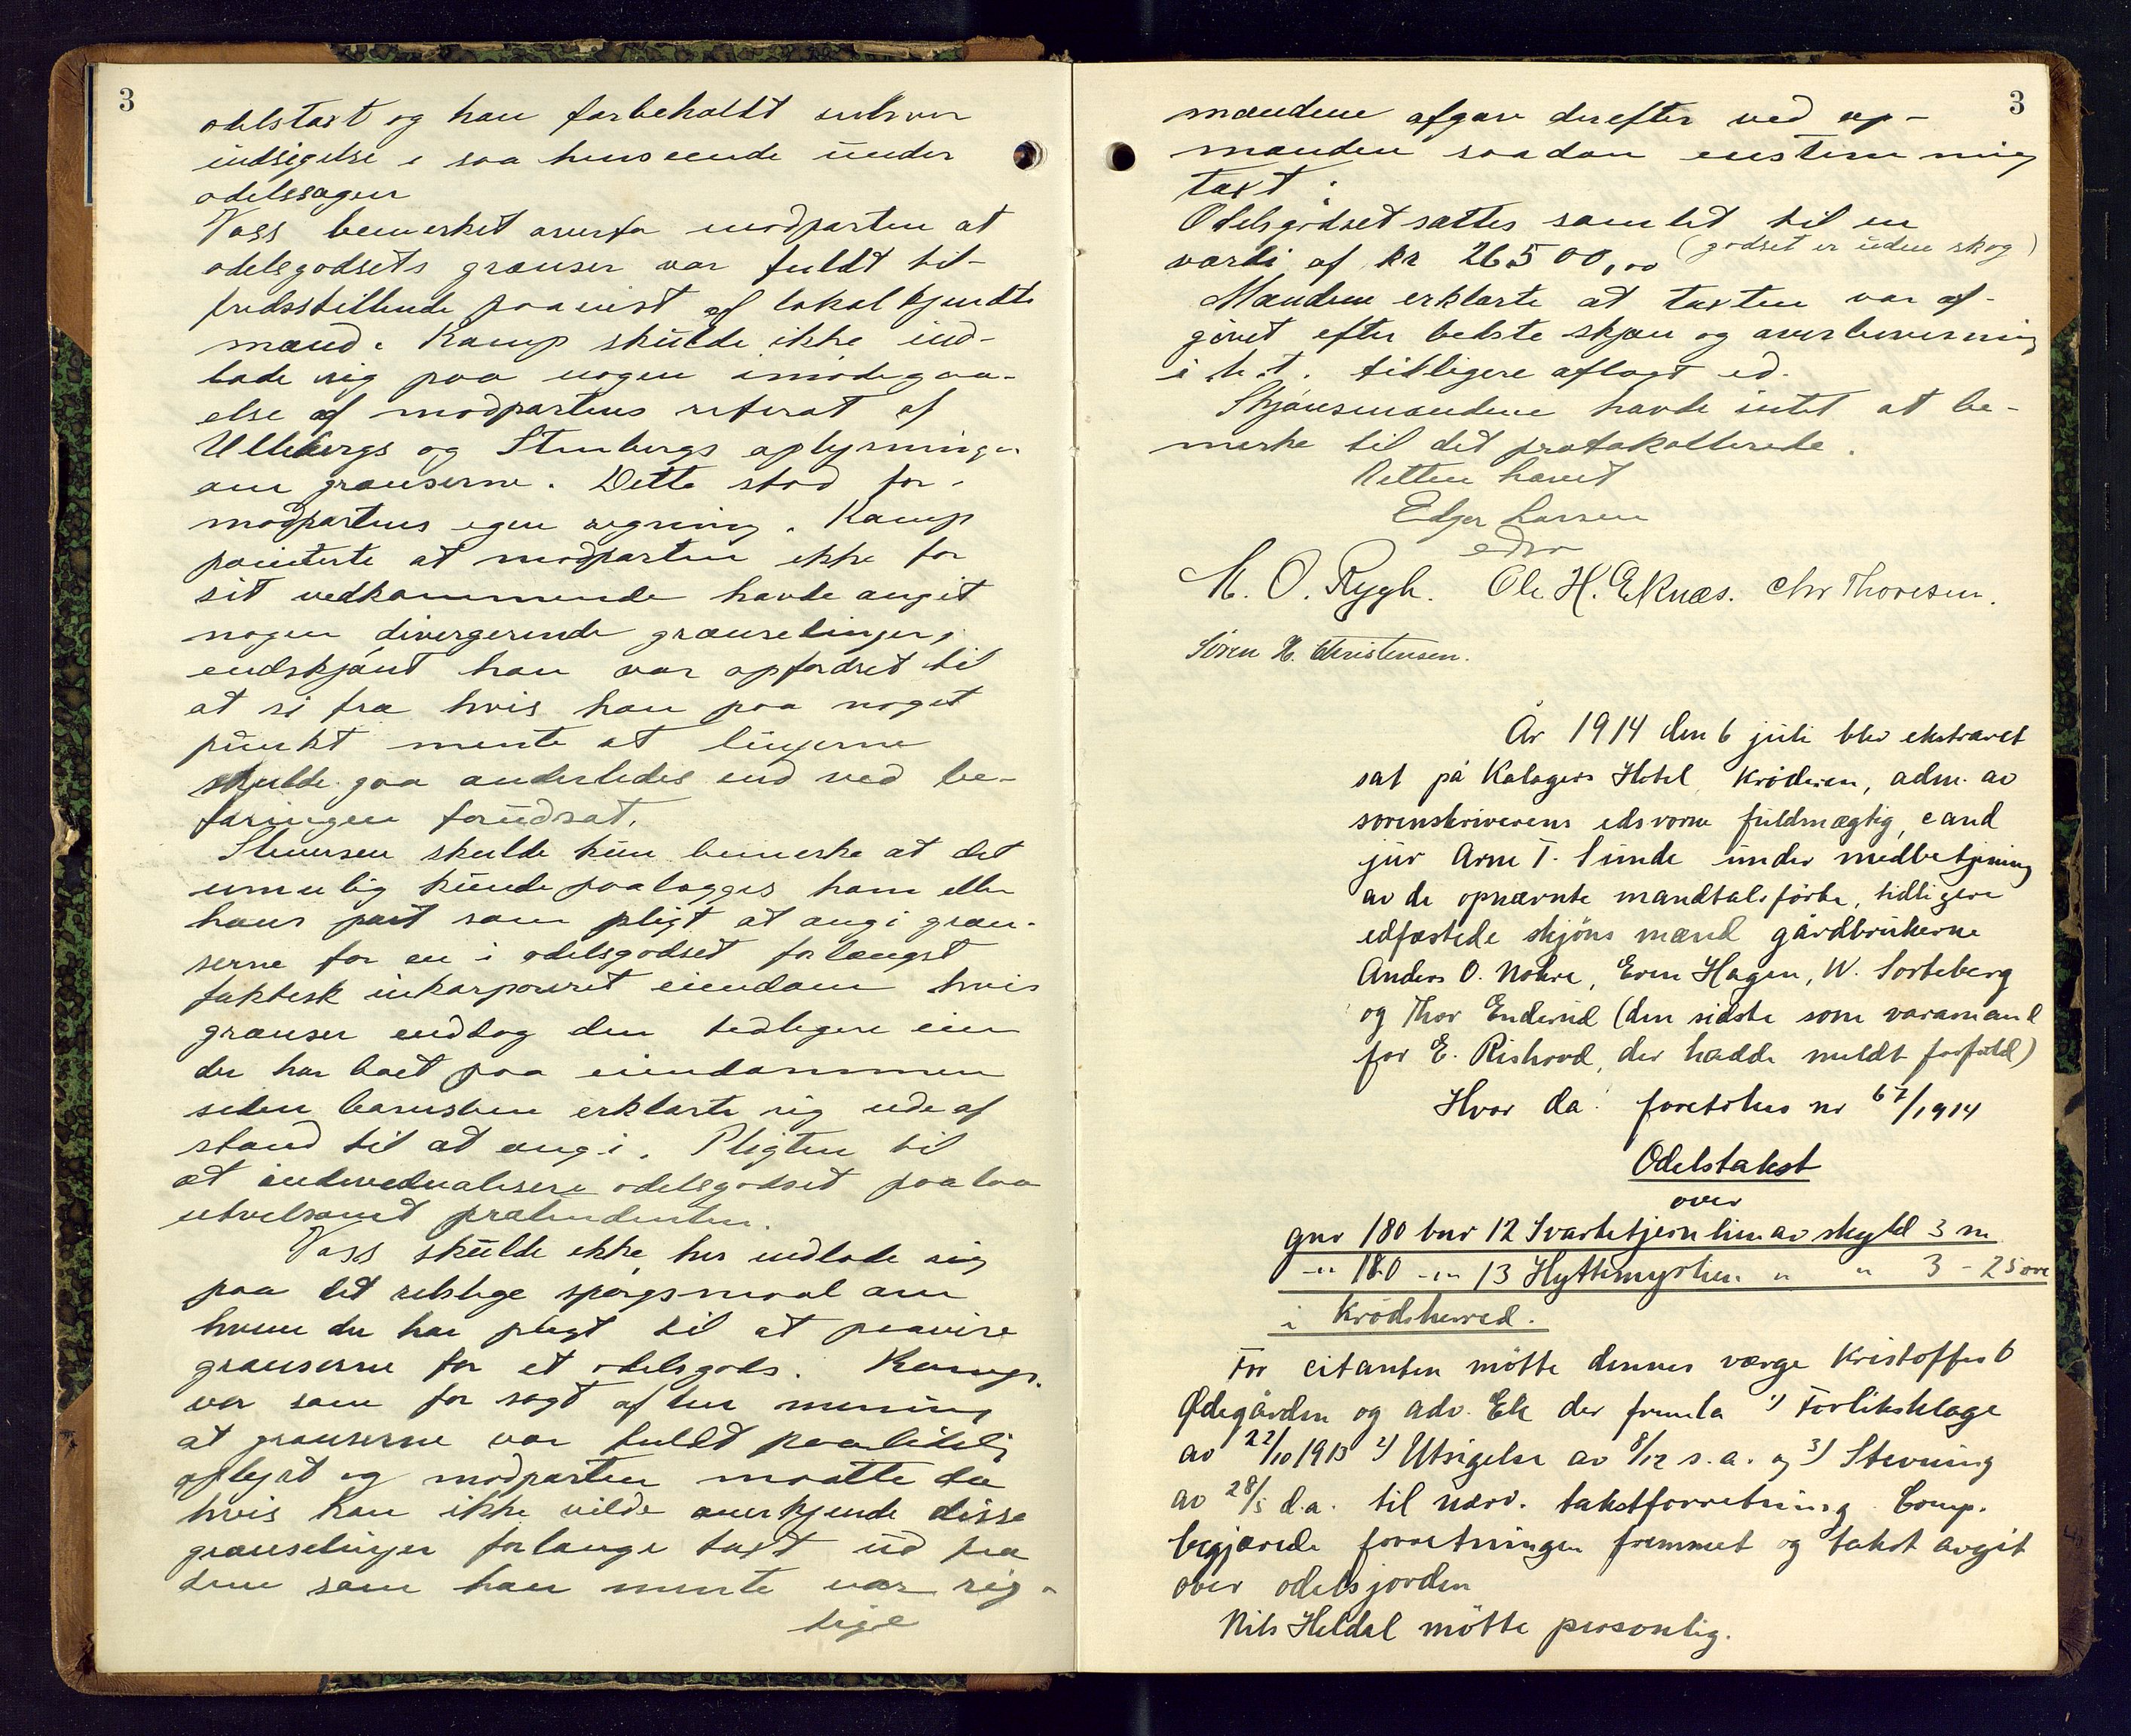 3
odelstaxt og han forbeholdt enhver
indsigelse i saa henseende under
odelssagen
Voss bemerket overfor modparten at
odelsgodsets grænser var fuldt til-
fredsstillende paavist af lokalkjendte
mænd. Kamp skulde ikke ind-
lade sig paa nogen imødegaa-
else af modpartens referat af
Ullebergs og Stenbergs oplysninger
om grænserne. Dette stod for
modpartens egen regning. Kamp
pointerte at modparten ikke for
sit vedkommende havde angit
nogen divergerende grænselinjer,
endskjønt han var opfordret til
at si fra hvis han paa noget
punkt mente at linjerne
skulde gaa anderledes end ved be-
faringen forudsat.
Steversen skulde kun bemerke at det
umulig kunde paalægges ham eller
hans part som pligt at angi græn-
serne for en i odelsgodset forlængst
faktisk inkorporeret eiendom hvis
grænser endog den tidligere eier
der har boet paa eiendommen
siden barnsben erklærte sig ude af
stand til at angi. Pligten til
at individualisere odelsgodset paalaa
utvilsomt prætendenten.
Voss skulde ikke her indlade sig
paa det retslige spørgsmaal om
hvem der har pligt til at paavise
grænserne for et odelsgods. Kamp
var som før sagt af den mening
at grænserne var fuldt paalitelig
oplyst og modparten maatte da
hvis han ikke vilde anerkjende disse
grænselinjer forlange taxt ud fra
dem som han mente var rig-
tige
3
mændene afgav derefter ved op-
manden saadan enstemmig
taxt:
Odelsgodset sættes samlet til en
værdi af kr 26500,00 (godset er uden skog)
Mændene erklærte at taxten var af-
givet efter bedste skjøn og overbevisning
i h.t. tidligere aflagt ed.
Skjønsmændene havde intet at be-
merke til det protokollerede.
Retten hævet
Edgar Larsen
edsv
M. O. Rygh. Ole H. Eknæs. Chr Thoresen.
Sören H. Christensen.
År 1914 den 6 juli blev ekstraret
sat på Kalagers Hotel, Kröderen, adm. av
sorenskriverens edsvorne fuldmægtig, cand
jur Arne T. Sunde under medbetjening
av de opnævnte mandtalsförte, tidligere
edfæstede skjöns mænd gårdbrukerne
Anders O. Nohre, Even Hagen, W. Sorteberg
og Thor Enderud (den sidste som varamand
for E. Rishovd, der hadde meldt forfald)
Hvor da: foretokes nr 67/1914
Odelstakst
over
gnr 180 bnr 12 Svartetjernlien av skyld 3 m
-"- 180 -"- 13 Hyttemyrhen " " 3 - 25 øre
i Krödsherred.
For citanten mötte dennes værge Kristoffer O
Ødegården og adv. Ek der fremla 1) Forliksklage
av 22/10 1913 2) Utsigelse av 8/12 s.a. og 3) Stevning
av 28/5 d.a. til nærv. takstforretning. Comp.
begjærede forretningen fremmet og takst avgit
over odelsjorden
Nils Heldal mötte personlig.